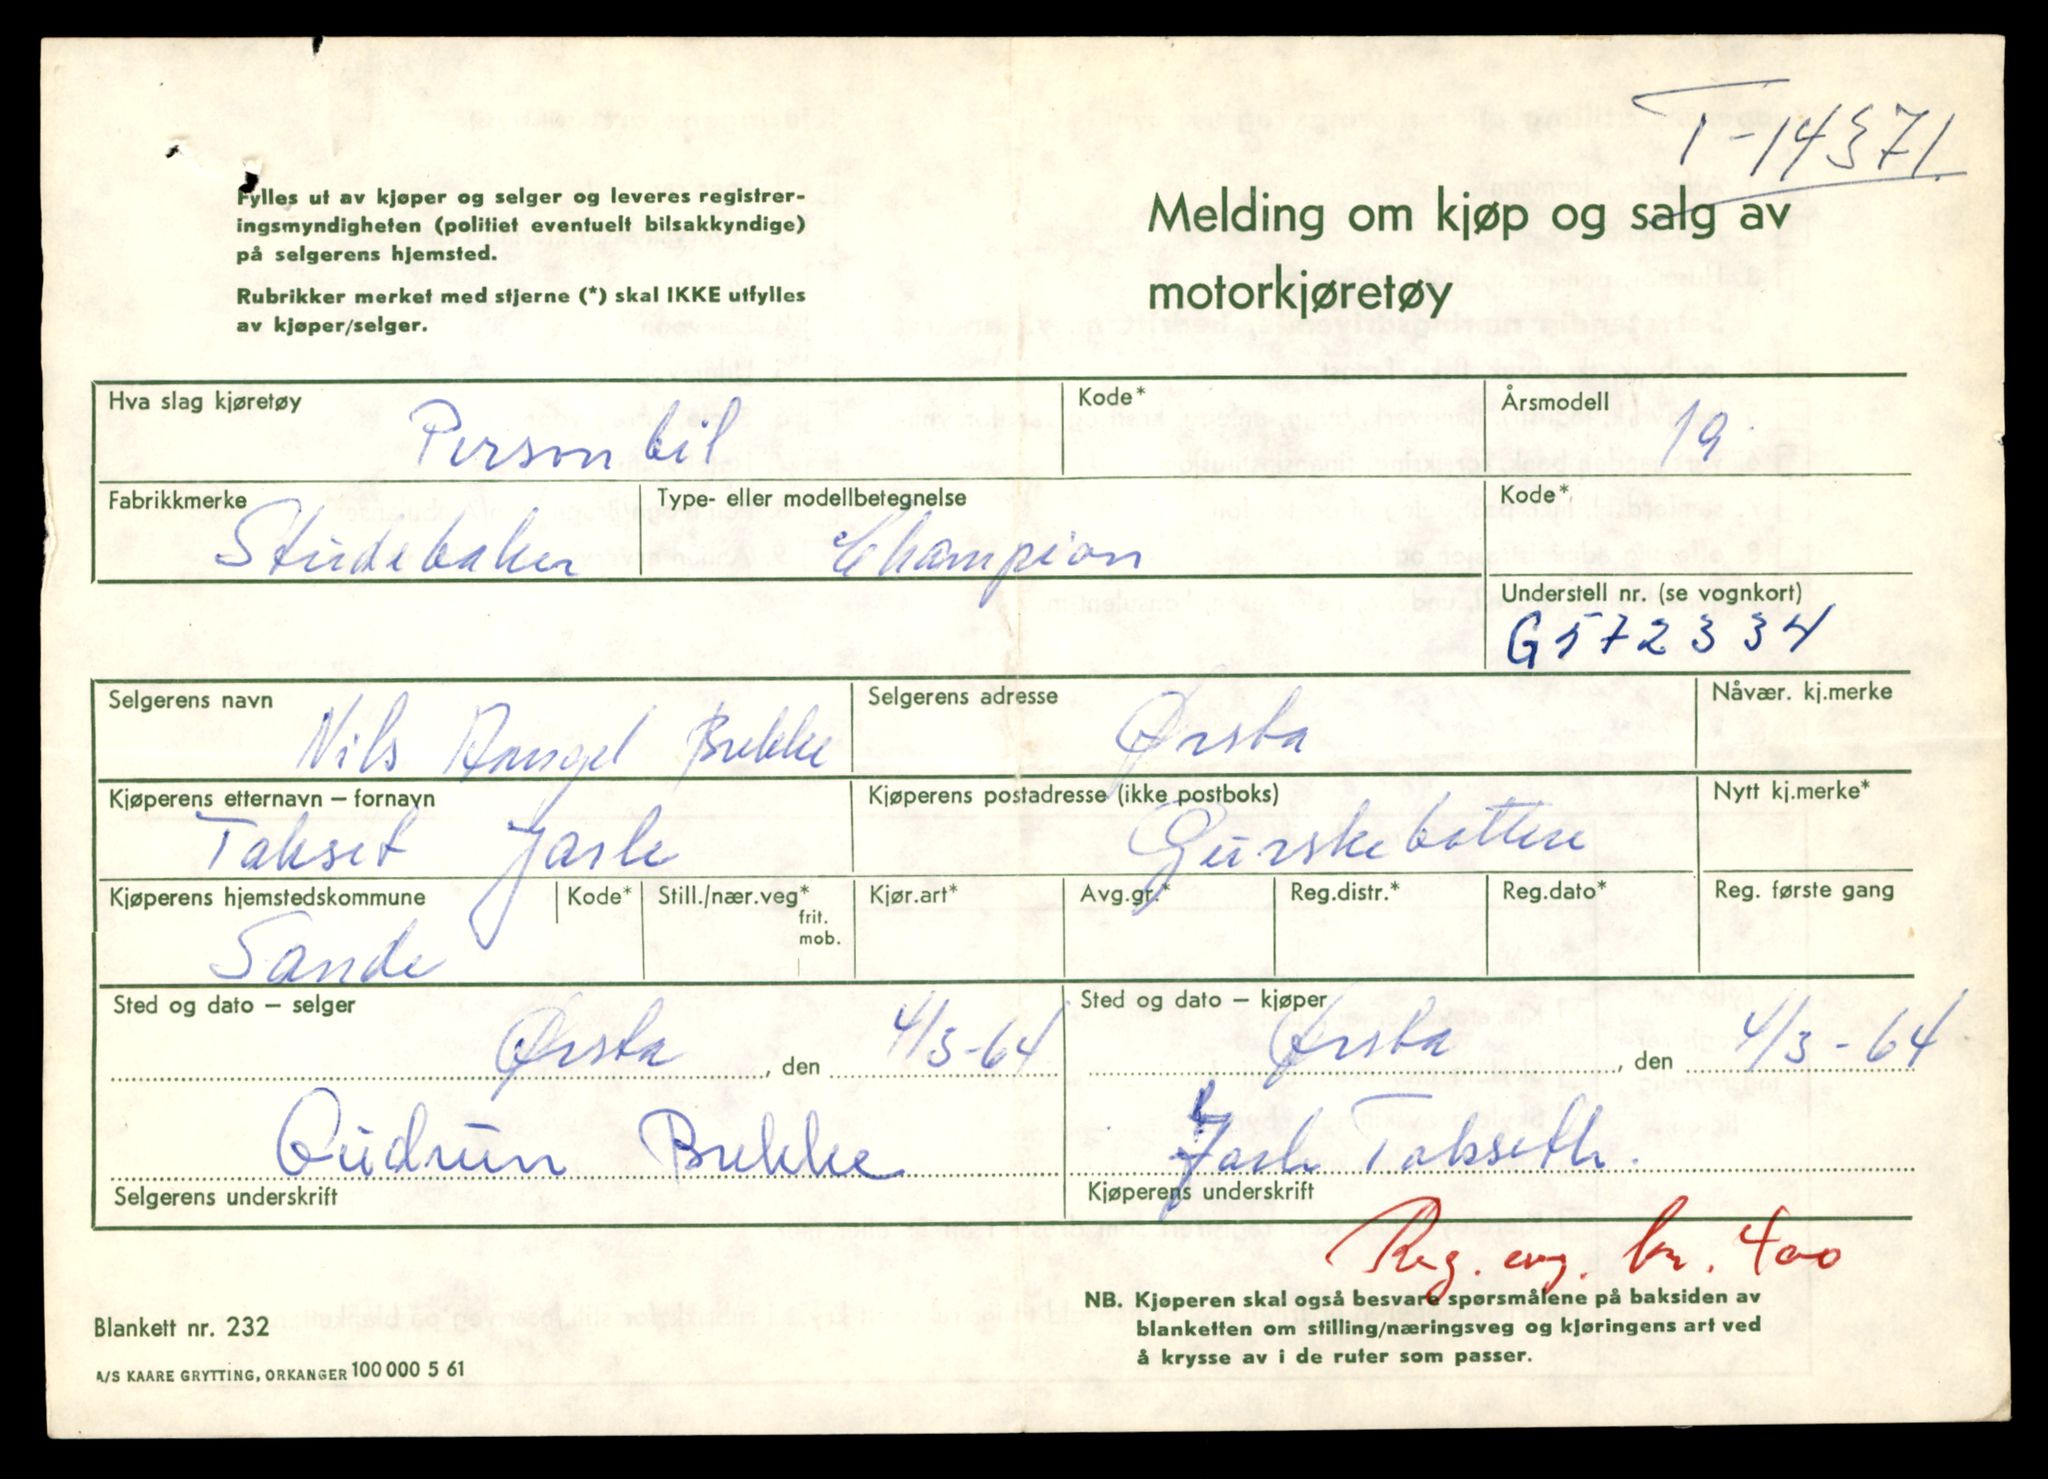 T-14371
Fylles ut av kjøper og selger og leveres registrer-
ingsmyndigheten (politiet eventuelt bilsakkyndige)
på selgerens hjemsted.
Rubrikker merket med stjerne (*) skal IKKE utfylles
av kjøper/selger.
Melding om kjøp og salg av
motorkjøretøy
Hva slag kjøretøy Personbil
Kode*
Årsmodell 19
Fabrikkmerke Studebaker
Type- eller modellbetegnelse Champion
Kode*
Understell nr. (se vognkort)
G572334
Selgerens navn
Nils Ansgel Bekke
Selgerens adresse
Ørsta
Nåvær. kj.merke
Kjøperens etternavn – fornavn
Takset Jasle
Kjøperens postadresse (ikke postboks)
Gurskebotten
Nytt kj.merke*
Kjøperens hjemstedskommune
Sande
Kode*
Still./nær.veg*
frit.
mob.
Kjør.art*
Avg.gr.*
Reg.distr.*
Reg.dato*
Reg. første gang
Sted og dato – selger
Ørsta, den 4/3-64
Gudrun Bekke
Selgerens underskrift
Sted og dato – kjøper
Ørsta, den 4/3-64
Jasle Takseth.
Kjøperens underskrift
Reg. avg. kr. 400
NB. Kjøperen skal også besvare spørsmålene på baksiden av
blanketten om stilling/næringsveg og kjøringens art ved
å krysse av i de ruter som passer.
Blankett nr. 232
A/S KAARE GRYTTING, ORKANGER 100 000 5 61